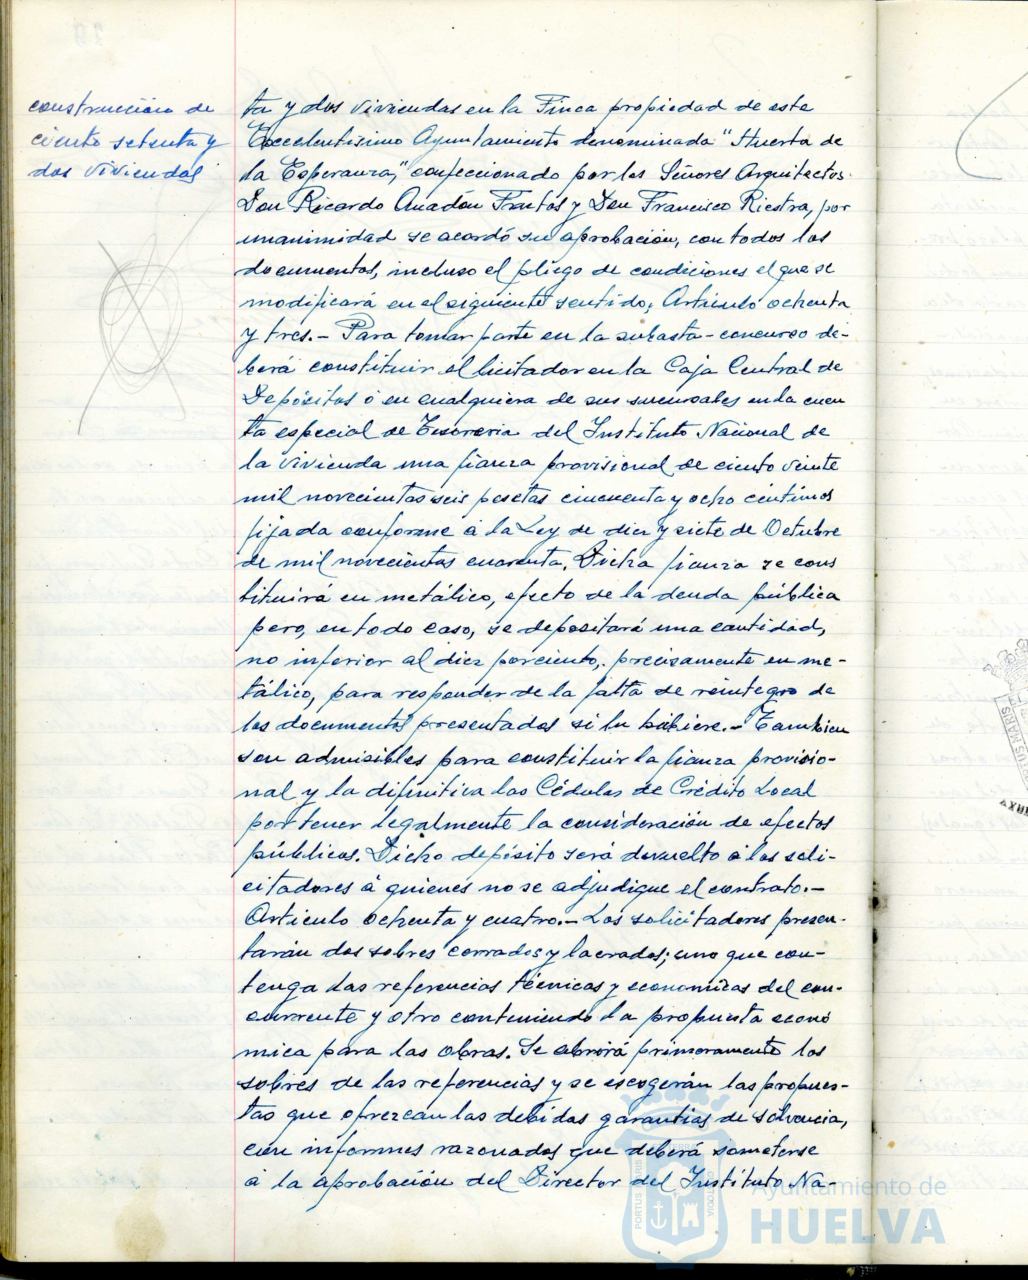 construccion de
ciento setenta y
dos viviendas
ta y dos viviendas en la Finca propiedad de este
Excelentisimo Ayuntamiento denominada "Huerta de
la Esperanza," confeccionado por los Señores Arquitectos
Don Ricardo Anadón Frutos y Don Francisco Riestra, por
unanimidad se acordó su aprobación, con todos los
documentos, incluso el pliego de condiciones el que se
modificará en el siguiente sentido; Articulo ochenta
y tres.- Para tomar parte en la subasta-concurso de-
berá constituir el licitador en la Caja Central de
Depósitos ó en cualquiera de sus sucursales en la cuen
ta especial de Tesoreria del Instituto Nacional de
la vivienda una fianza provisional de ciento veinte
mil novecientas seis pesetas cincuenta y ocho céntimos
fijada conforme á la Ley de diez y siete de Octubre
de mil novecientos cuarenta. Dicha fianza se cons
tituirá en metálico, efecto de la deuda pública
pero, en todo caso, se depositará una cantidad,
no inferior al diez por ciento, precisamente en me-
tálico, para responder de la falta de reintegro de
los documentos presentados si lo hubiere.- Tambien
son admisibles para constituir la fianza provisio-
nal y la difinitiva las Cédulas de Crédito Local
por tener legalmente la consideración de efectos
públicos. Dicho depósito será devuelto á los soli-
citadores á quienes no se adjudique el contrato.-
Articulo ochenta y cuatro.- Los solicitadores presen-
tarán dos sobres cerrados y lacrados; uno que con-
tenga las referencias técnicas y economicas del con-
currente y otro conteniendo la propuesta econó
mica para las obras. Se abrirá primeramente los
sobres de las referencias y se escogerán las propues-
tas que ofrezcan las debidas garantias de solvencia,
con informes razonados que deberá someterse
á la aprobación del Director del Instituto Na-
Ayuntamiento de
HUELVA